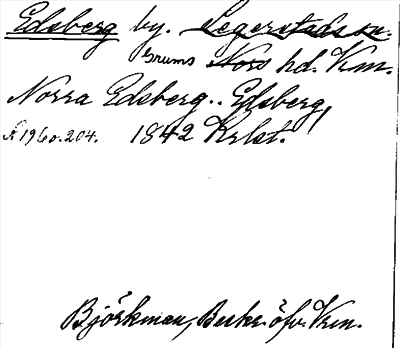 Edsberg by. Segerstads sn.
Grums Nors hd. Vrm.
Norra Edsberg.. Edsberg,
A 1960.204. 1842 Krlst.
Björkman, Beskr. öfv. Vrm.